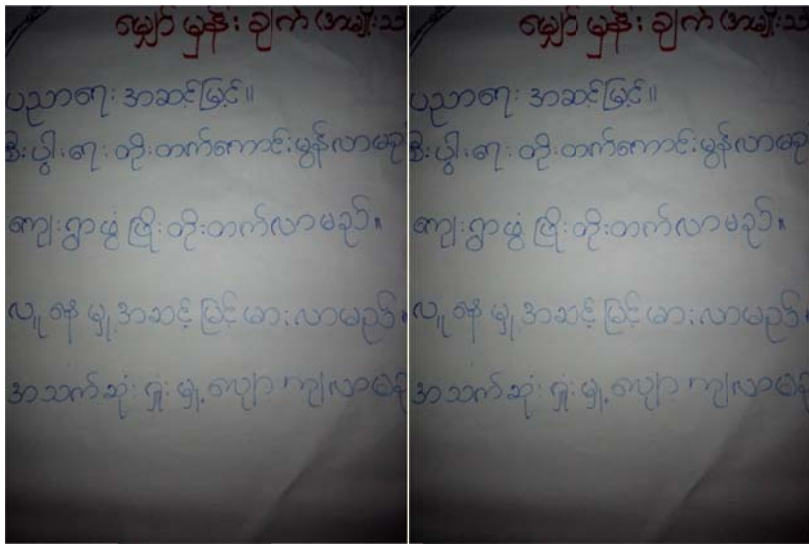 မျှော်မှန်းချက် (အမျိုးသ
ပညာရေး အဆင့်မြင့်။
စီးပွါးရေး တိုးတက်ကောင်းမွန်လာမည်
ကျေးရွာဖွံ့ဖြိုးတိုးတက်လာမည်။
လူနေမှု့အဆင့်မြင့်မားလာမည်။
အသက်ဆုံးရှုံးမှု့လျော့ကျလာမည်
မျှော်မှန်းချက် (အမျိုးသ
ပညာရေး အဆင့်မြင့်။
စီးပွါးရေး တိုးတက်ကောင်းမွန်လာမည်
ကျေးရွာဖွံ့ဖြိုးတိုးတက်လာမည်။
လူနေမှု့အဆင့်မြင့်မားလာမည်။
အသက်ဆုံးရှုံးမှု့လျော့ကျလာမည်